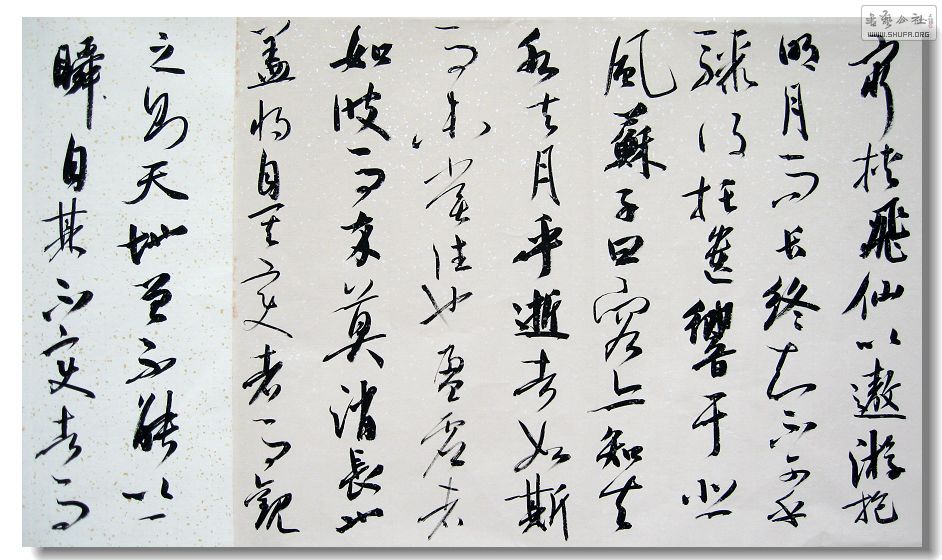 書藝公社
WWW.SHUFA.ORG
窮挾飛仙以遨游抱
明月而長終知不可乎
驟得托遺響于悲
風蘇子曰客亦知夫
水與月乎逝者如斯
而未嘗往也盈虛者
如彼而卒莫消長也
盖將自其變者而觀
之則天地曾不能以一
瞬自其不變者而